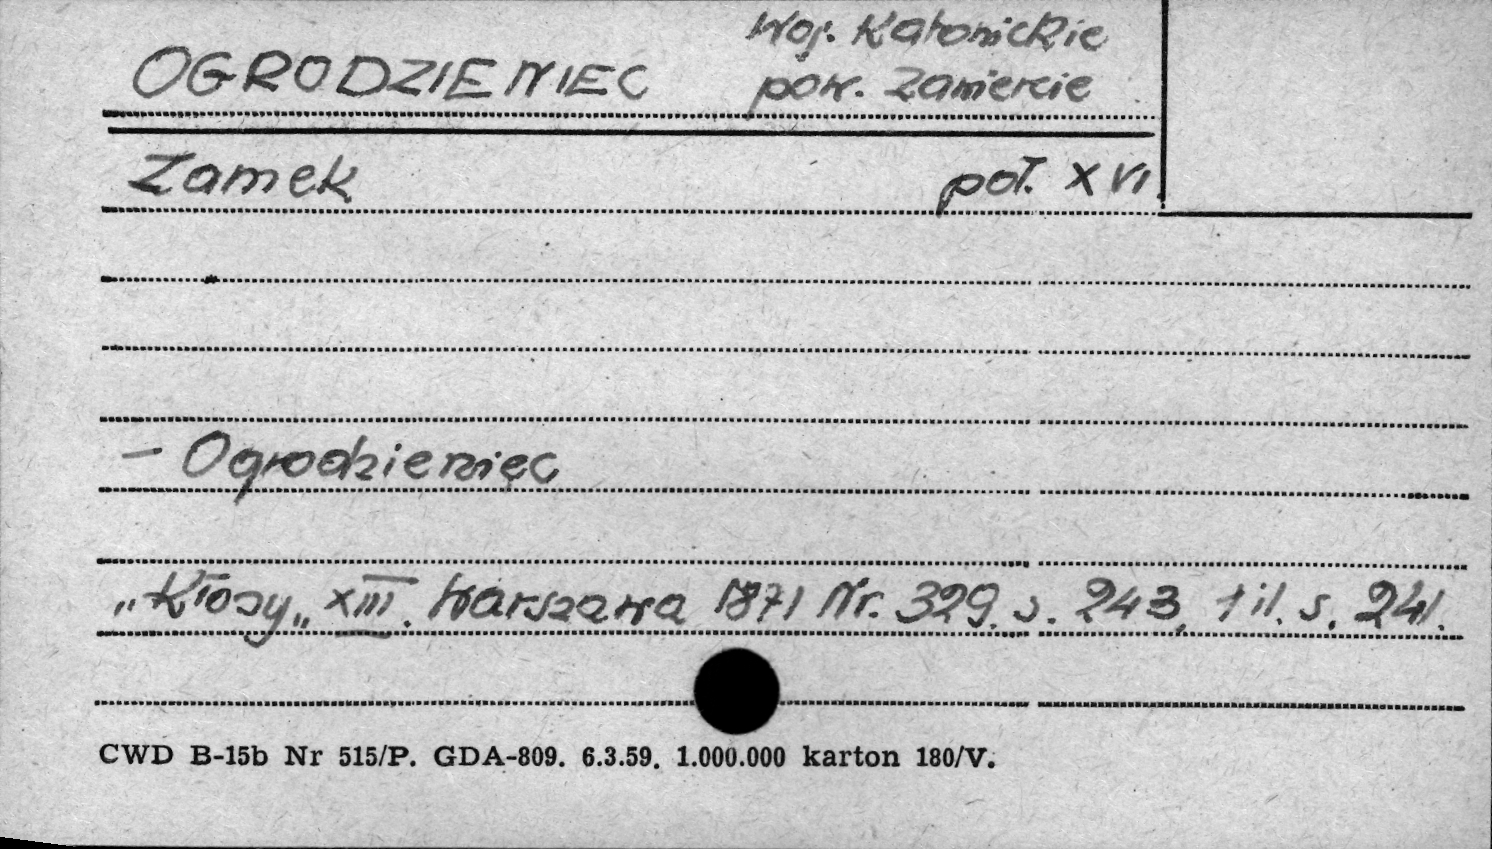 Woj. Katowickie
OGRODZIENIEC pow. Zawiercie
Zamek poł. XVI
– Ogrodzieniec
„Kłosy„ XIII. Warszawa 1871 Nr. 329. s. 243, 1 il. s. 241.
CWD B-15b Nr 515/P. GDA-809. 6.3.59. 1.000.000 karton 180/V.